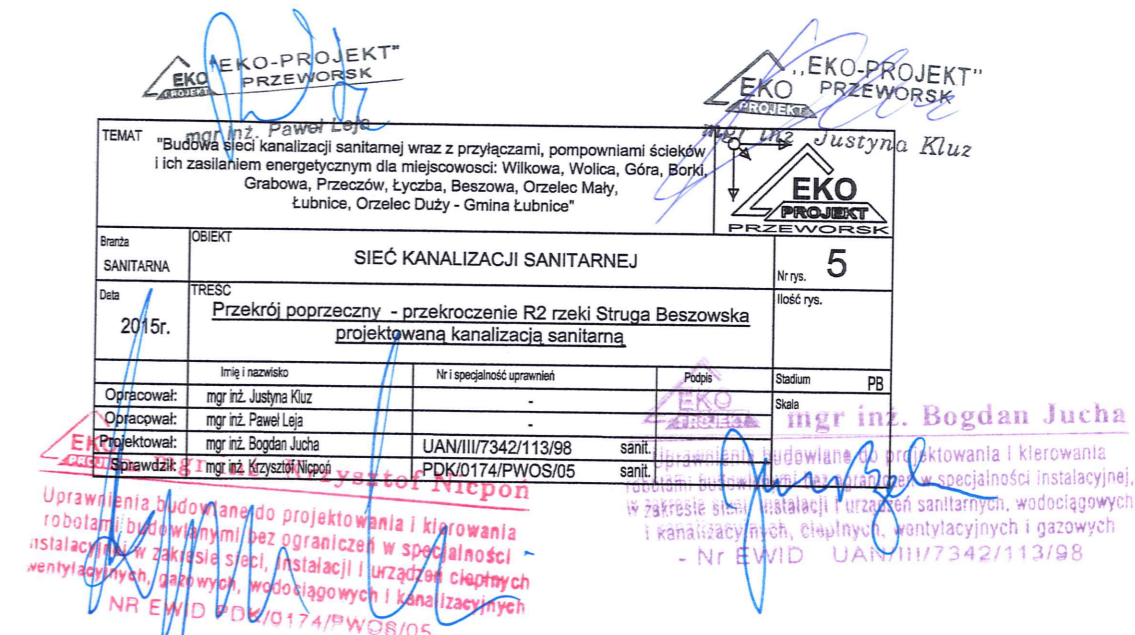 "EKO-PROJEKT"
PRZEWORSK
EKO
PROJEKT
mgr inż. Paweł Leja
,,EKO-PROJEKT"
PRZEWORSK
EKO
PROJEKT
mgr inż Justyna Kluz
TEMAT
"Budowa sieci kanalizacji sanitarnej wraz z przyłączami, pompowniami ścieków
i ich zasilaniem energetycznym dla miejscowosci: Wilkowa, Wolica, Góra, Borki,
Grabowa, Przeczów, Łyczba, Beszowa, Orzelec Mały,
Łubnice, Orzelec Duży - Gmina Łubnice"
EKO
PROJEKT
PRZEWORSK
Branża
SANITARNA
OBIEKT
SIEĆ KANALIZACJI SANITARNEJ
Nr rys. 5
Data
2015r.
TREŚĆ
Przekrój poprzeczny - przekroczenie R2 rzeki Struga Beszowska
projektowaną kanalizacją sanitarną
Ilość rys.
Imię i nazwisko Nr i specjalność uprawnień Podpis
Stadium PB
Opracował: mgr inż. Justyna Kluz -
Skala
Opracował: mgr inż. Paweł Leja -
Projektował: mgr inż. Bogdan Jucha UAN/III/7342/113/98 sanit.
Sprawdził: mgr inż. Krzysztof Nicpoń PDK/0174/PWOS/05 sanit.
EKO
PROJEKT
mgr inż. Krzysztof Nicpoń
Uprawnienia budowlane do projektowania i kierowania
robotami budowlanymi bez ograniczeń w specjalności
instalacyjnej w zakresie sieci, instalacji i urządzeń cieplnych
wentylacyjnych, gazowych, wodociągowych i kanalizacyjnych
NR EWID PDK/0174/PWOS/05
EKO
PROJEKT
mgr inż. Bogdan Jucha
Uprawnienia budowlane do projektowania i kierowania
robotami budowlanymi bez ograniczeń w specjalności instalacyjnej,
w zakresie sieci, instalacji i urządzeń sanitarnych, wodociągowych
i kanalizacyjnych, cieplnych, wentylacyjnych i gazowych
- Nr EWID UAN/III/7342/113/98